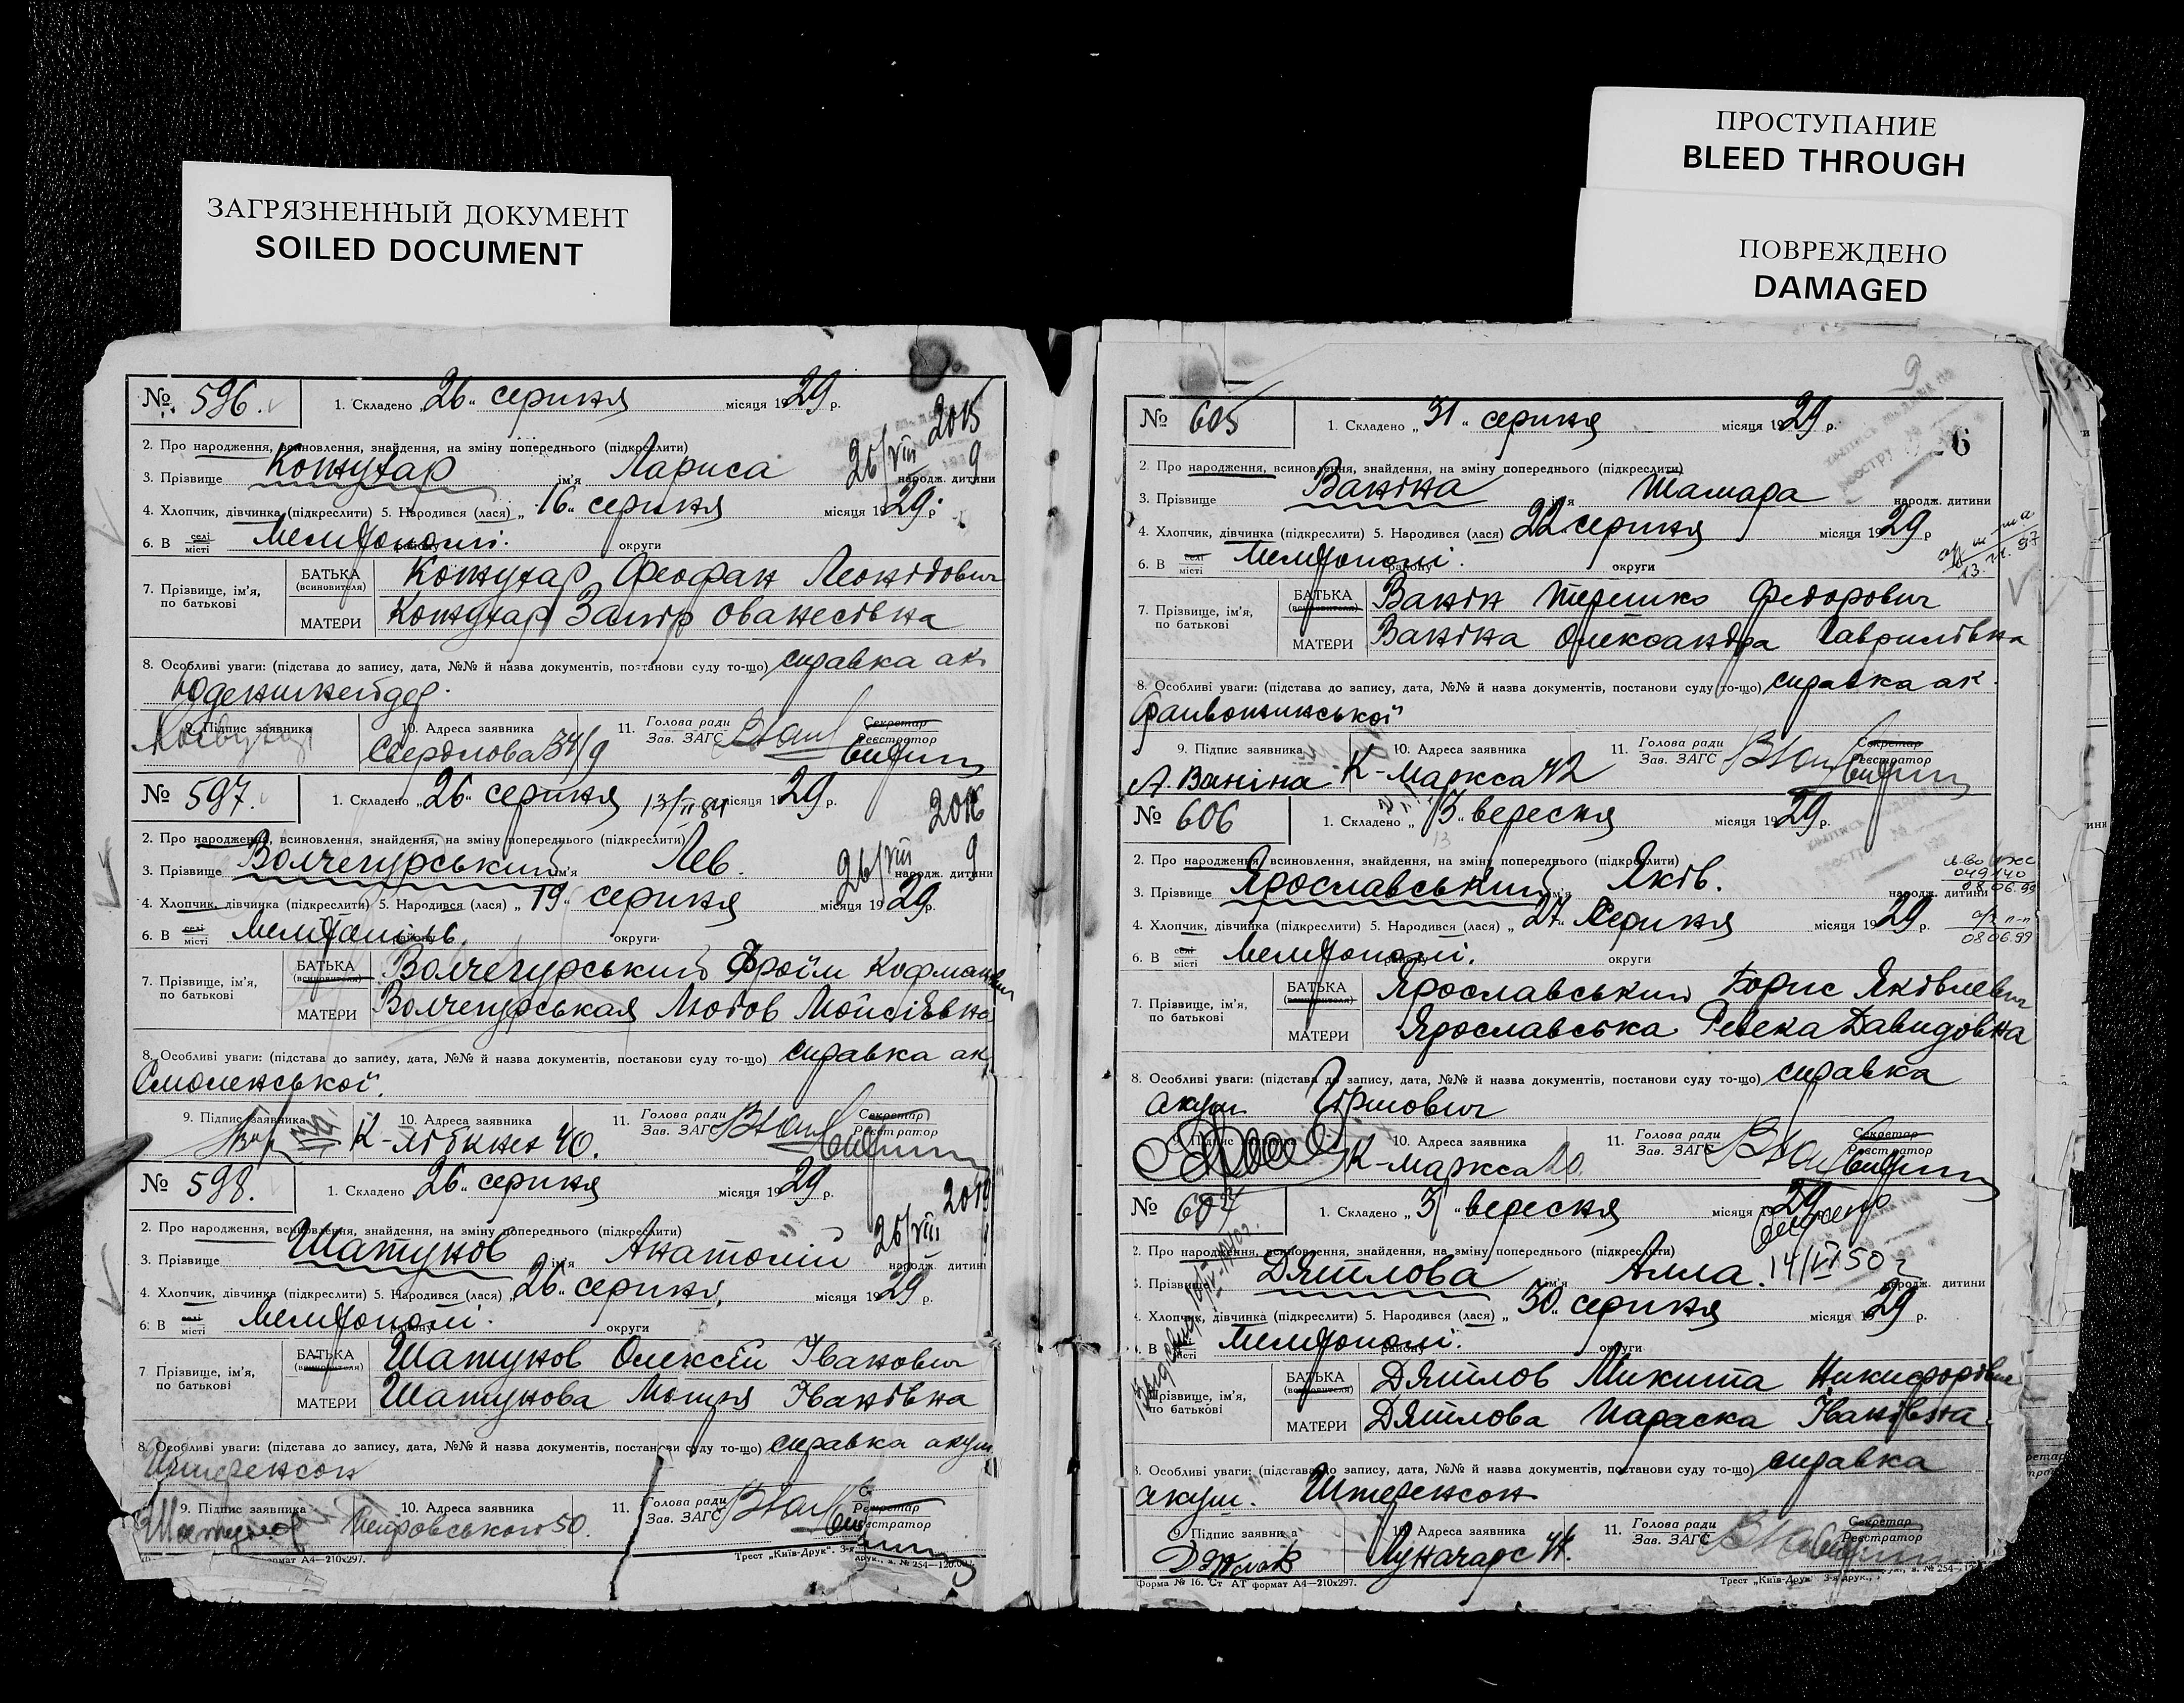 ЗАГРЯЗНЕННЫЙ ДОКУМЕНТ
SOILED DOCUMENT
ПРОСТУПАНИЕ
BLEED THROUGH
ПОВРЕЖДЕНО
DAMAGED
№ 596. 1. Складено 26 " серпня місяця 1929 р.
2015
2. Про народження, всиновлення, знайдення, на зміну попереднього (підкреслити)
26/VIII 9
3. Прізвище Кожухар ім'я Лариса народж. дитини
4. Хлопчик, дівчинка (підкреслити) 5. Народився (лася) „ 16 " серпня місяця 1929 р.
6. В селі місті Мелітополі. району округи
7. Прізвище, ім'я, по батькові
БАТЬКА (всиновителя) Кожухар Феофан Леонідович
МАТЕРИ Кожухар Замір Ованесівна
8. Особливі уваги: (підстава до запису, дата, №№ й назва документів, постанови суду то-що) справка ак.
Юденшнейдер.
9. Підпис заявника 10. Адреса заявника 11. Голова ради Зав. ЗАГС Секретар Реєстратор
Свердлова 34/9
№ 597. 1. Складено „ 26 " серпня місяця 1929 р.
13/II 84
2016
2. Про народження, всиновлення, знайдення, на зміну попереднього (підкреслити)
26/VIII 9
3. Прізвище Волчегурський ім'я Лев. народж. дитини
4. Хлопчик, дівчинка (підкреслити) 5. Народився (лася) „ 19 " серпня місяця 1929 р.
6. В селі місті Мелітопіль. району округи
7. Прізвище, ім'я, по батькові
БАТЬКА (всиновителя) Волчегурський Фроїм Кофманович
МАТЕРИ Волчегурськая Любов Мойсіївна
8. Особливі уваги: (підстава до запису, дата, №№ й назва документів, постанови суду то-що) справка ак.
Смоленської.
9. Підпис заявника 10. Адреса заявника 11. Голова ради Зав. ЗАГС Секретар Реєстратор
К-Лібкнех 40.
№ 598. 1. Складено 26 " серпня місяця 1929 р.
2. Про народження, всиновлення, знайдення, на зміну попереднього (підкреслити)
26/VIII
3. Прізвище Шатунов ім'я Анатолій народж. дитини
4. Хлопчик, дівчинка (підкреслити) 5. Народився (лася) „ 26 " серпня, місяця 1929 р.
6. В селі місті Мелітополі. району округи
7 Прізвище, ім'я, по батькові
БАТЬКА (всиновителя) Шатунов Олексій Іванович
МАТЕРИ Шатунова Мотря Іванівна
8. Особливі уваги: (підстава до запису, дата, №№ й назва документів, постанови суду то-що) справка акуш.
Штеренсон
9. Підпис заявника 10. Адреса заявника 11. Голова ради Зав. ЗАГС Секретар Реєстратор
Петровського 50.
формат А4—210х297. Трест „Київ-Друк". 3-я друк., з. № 254—120.00
9
6
№ 605 1. Складено „ 31 " серпня місяця 1929 р.
2. Про народження, всиновлення, знайдення, на зміну попереднього (підкреслити)
3. Прізвище Ваніна ім'я Тамара народж. дитини
4. Хлопчик, дівчинка (підкреслити) 5. Народився (лася) 22 серпня місяця 1929 р
6. В селі місті Мелітополі. району округи
7. Прізвище, ім'я, по батькові
БАТЬКА (всиновителя) Ванін Терешко Федорович
МАТЕРИ Ваніна Олександра Гаврилівна
8. Особливі уваги: (підстава до запису, дата, №№ й назва документів, постанови суду то-що) справка ак.
9. Підпис заявника 10. Адреса заявника 11. Голова ради Зав. ЗАГС Секретар Реєстратор
А. Ваніна К-Маркса 42
№ 606 1. Складено „ 3 " вересня місяця 1929 р.
2. Про народження, всиновлення, знайдення, на зміну попереднього (підкреслити)
049140
08.06.99
3. Прізвище Ярославський ім'я Яків. народж. дитини
4. Хлопчик, дівчинка (підкреслити) 5. Народився (лася) „ 27 " Серпня місяця 1929 р.
08 06.99
6. В селі місті Мелітополі. району округи
7. Прізвище, ім'я, по батькові
БАТЬКА (всиновителя) Ярославський Борис Яківлевич
МАТЕРИ Ярославська Ревека Давидовна
8. Особливі уваги: (підстава до запису, дата, №№ й назва документів, постанови суду то-що) справка
акуш Гіршович
9. Підпис заявника 10. Адреса заявника 11. Голова ради Зав. ЗАГС Секретар Реєстратор
К-Маркса 20.
№ 607 1. Складено „ 3 " вересня місяця 1929
2. Про народження, всиновлення, знайдення, на зміну попереднього (підкреслити)
14/VI 50 г
3. Прізвище Дятлова ім'я Алла. народж. дитини
4. Хлопчик, дівчинка (підкреслити) 5. Народився (лася) „ 30 " серпня місяця 1929 р.
6. В селі місті Мелітополі. району округи
Прізвище, ім'я, по батькові
БАТЬКА (всиновителя) Дятлов Микита Никифорович
МАТЕРИ Дятлова Параска Іванівна.
8. Особливі уваги: (підстава до запису, дата, №№ й назва документів, постанови суду то-що) справка
акуш. Штеренсон
9. Підпис заявника 10. Адреса заявника 11. Голова ради Зав. ЗАГС Секретар Реєстратор
Форма № 16. Ст АТ формат А4—210х297. Трест „Київ-Друк" 3-я друк., з. № 254—